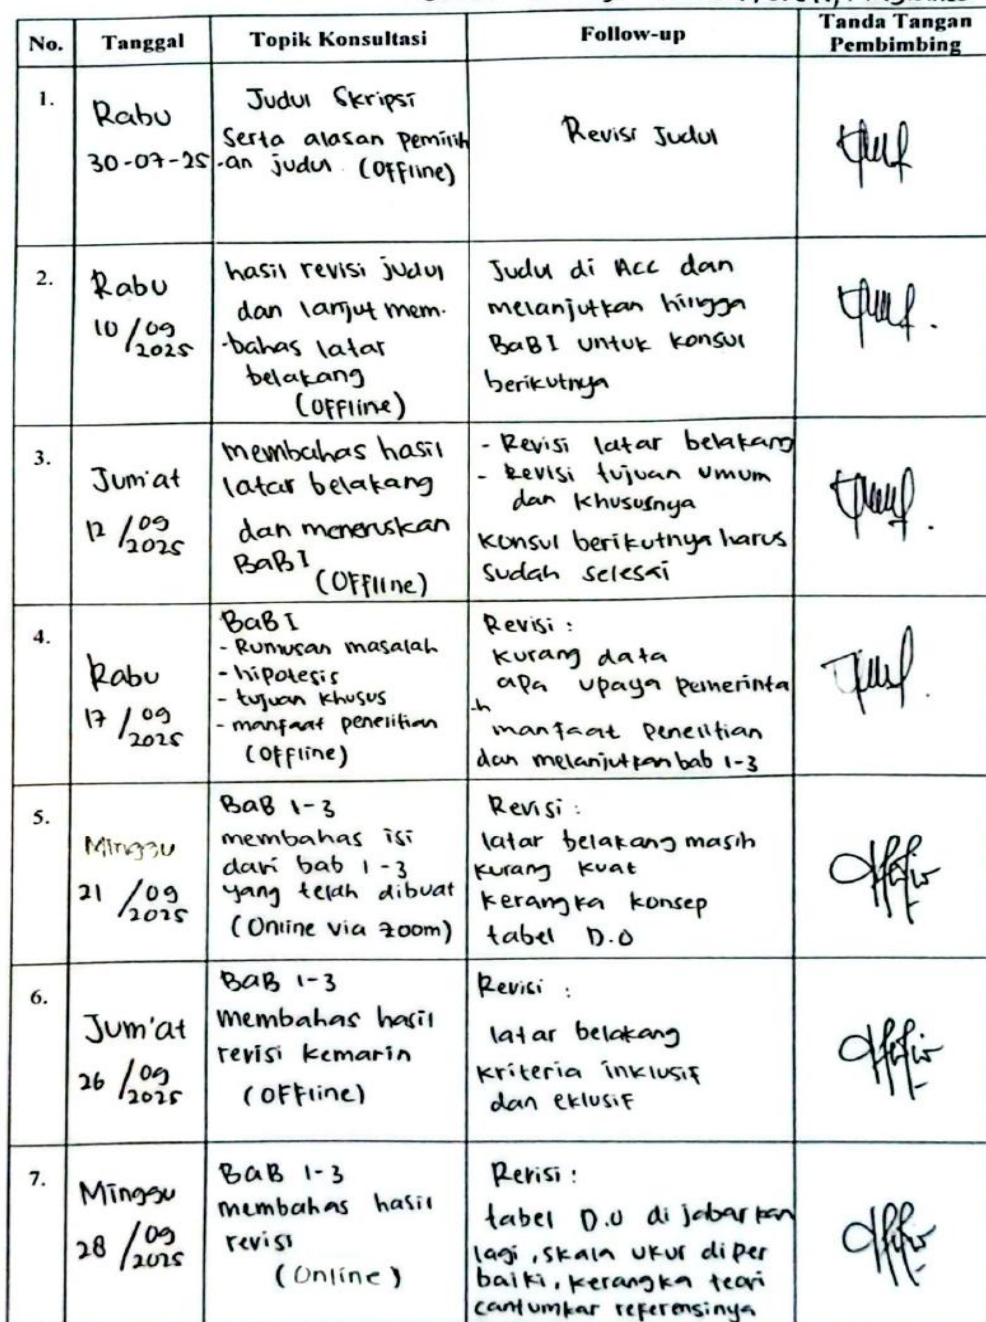 No. Tanggal Topik Konsultasi Follow-up Tanda Tangan
Pembimbing
1.
Rabu
30-07-25
Judul Skripsi
Serta alasan Pemilih
-an judul (Offline)
Revisi Judul
2.
Rabu
10/09
2025
hasil revisi judul
dan lanjut mem-
-bahas latar
belakang
(Offline)
Judul di Acc dan
melanjutkan hingga
BaB I untuk konsul
berikutnya
3.
Jum'at
12/09
2025
membahas hasil
latar belakang
dan meneruskan
BaB I
(Offline)
- Revisi latar belakang
- Revisi tujuan umum
dan Khususnya
Konsul berikutnya harus
sudah selesai
4.
Rabu
17/09
2025
BaB I
- Rumusan masalah
- hipotesis
- tujuan khusus
- manfaat penelitian
(Offline)
Revisi :
kurang data
apa upaya pemerinta
-h
manfaat Penelitian
dan melanjutkan bab 1-3
5.
Minggu
21/09
2025
BaB 1-3
membahas isi
dari bab 1-3
yang telah dibuat
(Online via Zoom)
Revisi :
latar belakang masih
kurang kuat
kerangka konsep
tabel D.O
6.
Jum'at
26/09
2025
BaB 1-3
membahas hasil
revisi kemarin
(Offline)
Revisi :
latar belakang
kriteria inklusif
dan eklusif
7.
Minggu
28/09
2025
BaB 1-3
membahas hasil
revisi
(Online)
Revisi :
tabel D.O di jabarkan
lagi, skala ukur diper
baiki, kerangka teori
cantumkan referensinya